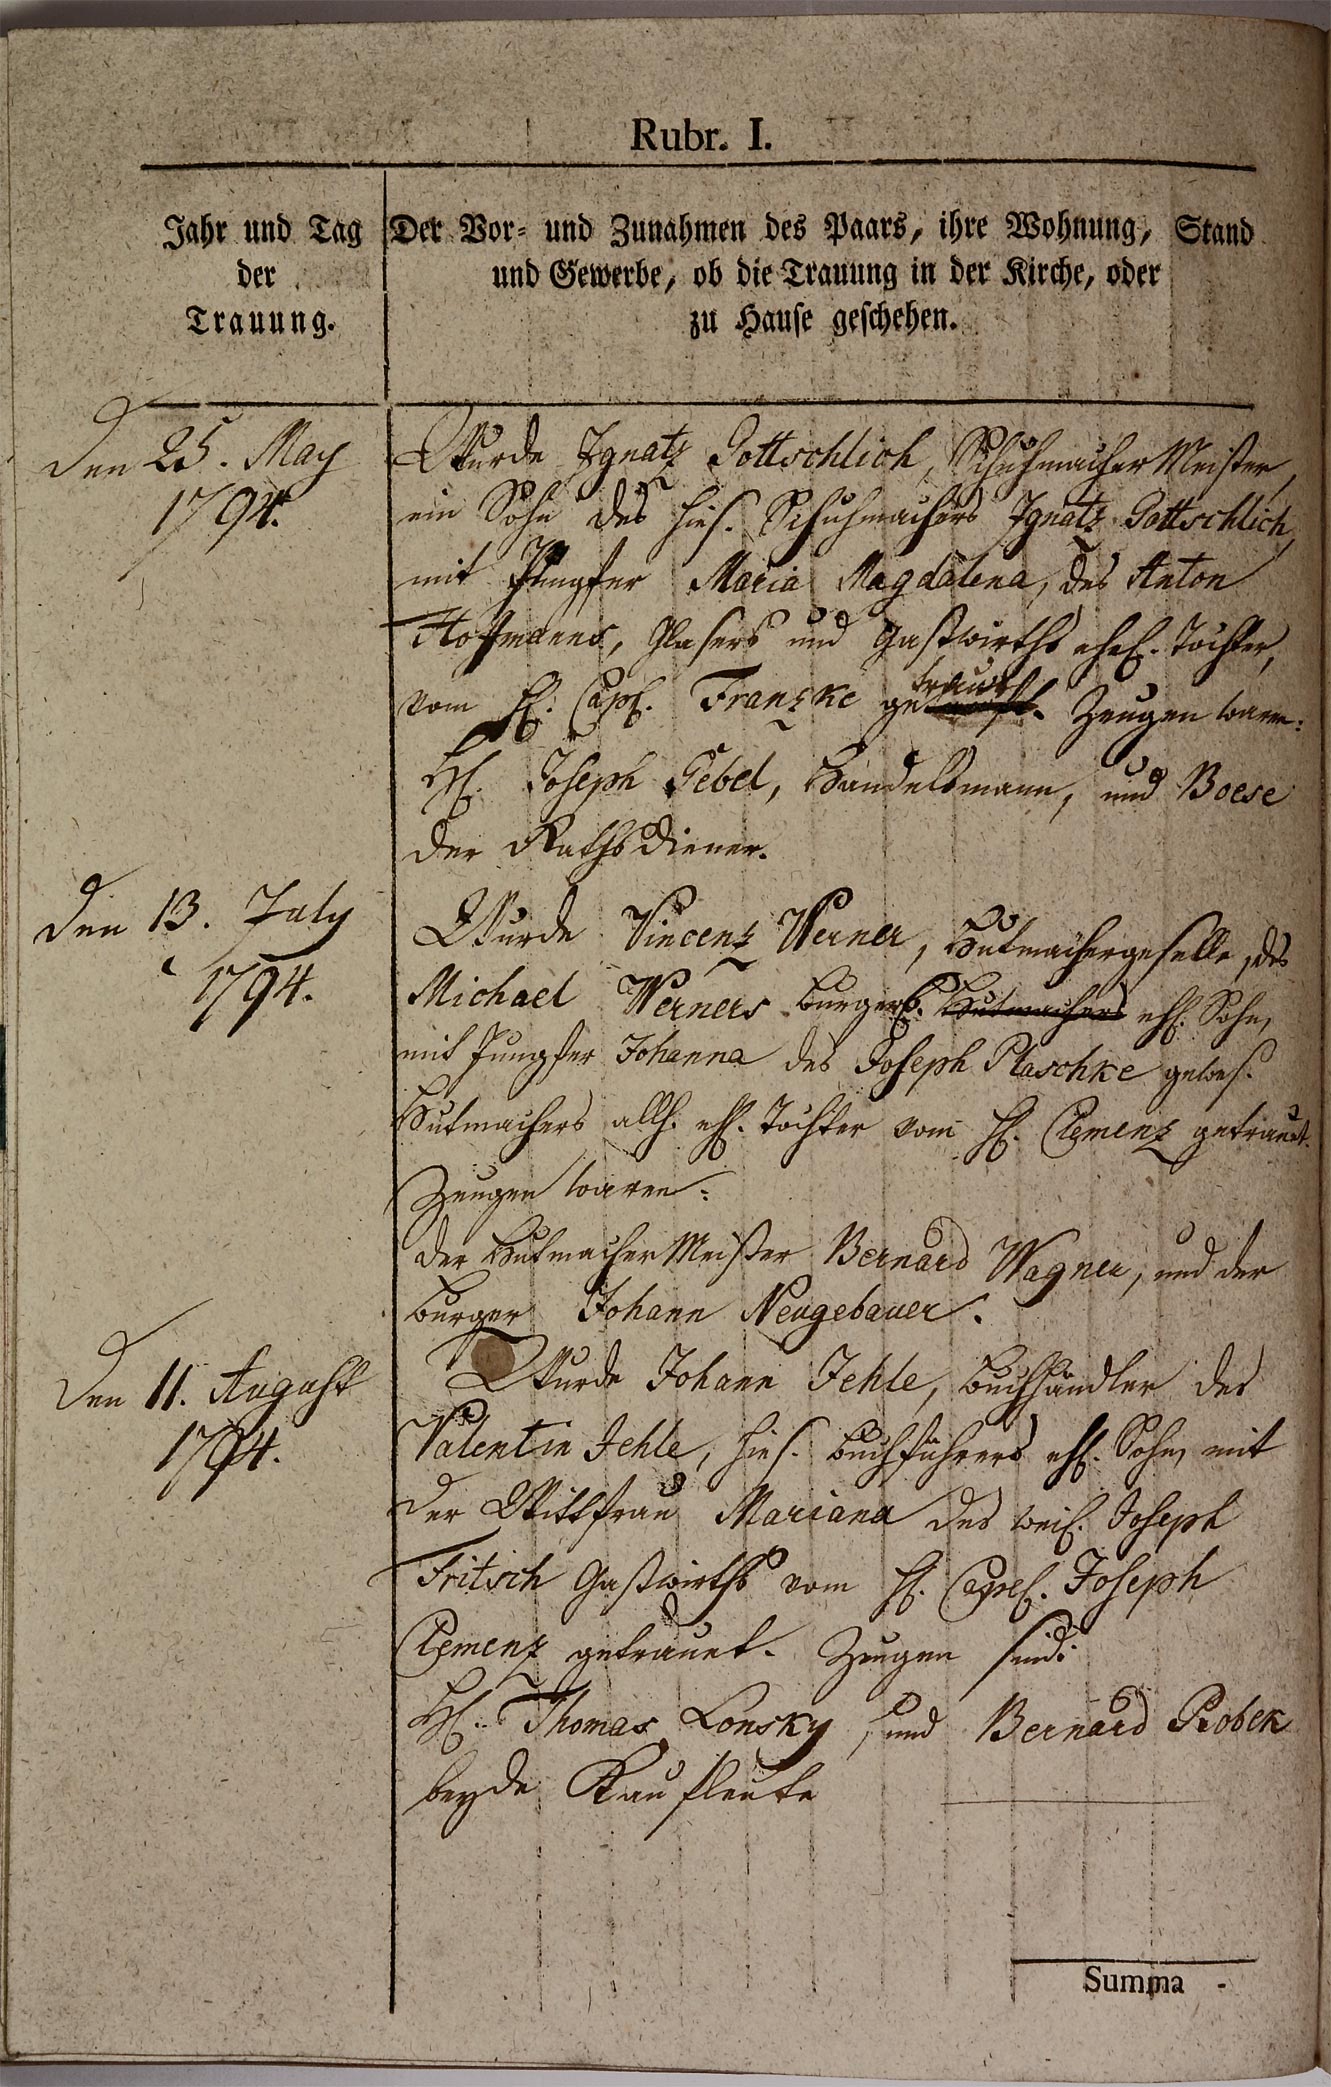 Rubr. I.
Jahr und Tag
der
Trauung.
Der Vor- und Zunahmen des Paars, ihre Wohnung, Stand
und Gewerbe, ob die Trauung in der Kirche, oder
zu Hause geschehen.
Den 25. May
1794.
Wurde Ignatz Gottschlich, Schuhmacher Meister,
ein Sohn des hies. Schuhmachers Ignatz Gottschlich,
mit Jungfer Maria Magdalena, des Anton
Hoffmanns, Glasers und Gastwirths ehel. Tochter,
vom H. Capl. Franzke getraut. Zeugen waren:
H. Joseph Gebel, Handelsmann, und Boese
der Rathsdiener.
Den 13. July
1794.
Wurde Vincenz Werner, Hutmachergeselle, des
Michael Werners burgerl. Hutmachers ehl. Sohn,
mit Jungfer Johanna des Joseph Plaschke gewes.
Hutmachers allh. ehl. Tochter vom H. Clemenz getrauet.
Zeugen waren:
der Hutmacher Meister Bernard Wagner, und der
burger Johann Neugebauer.
Den 11. August
1794.
Wurde Johann Jehle, Buchhändler des
Valentin Jehle, hies. Buchführers ehl. Sohn, mit
der Wittfrau Mariana des weil. Joseph
Fritsch Gastwirths vom H. Capel. Joseph
Clemenz getrauet. Zeugen sind:
H. Thomas Lonsky, und Bernard Probek
beyde Kaufleute
Summa -